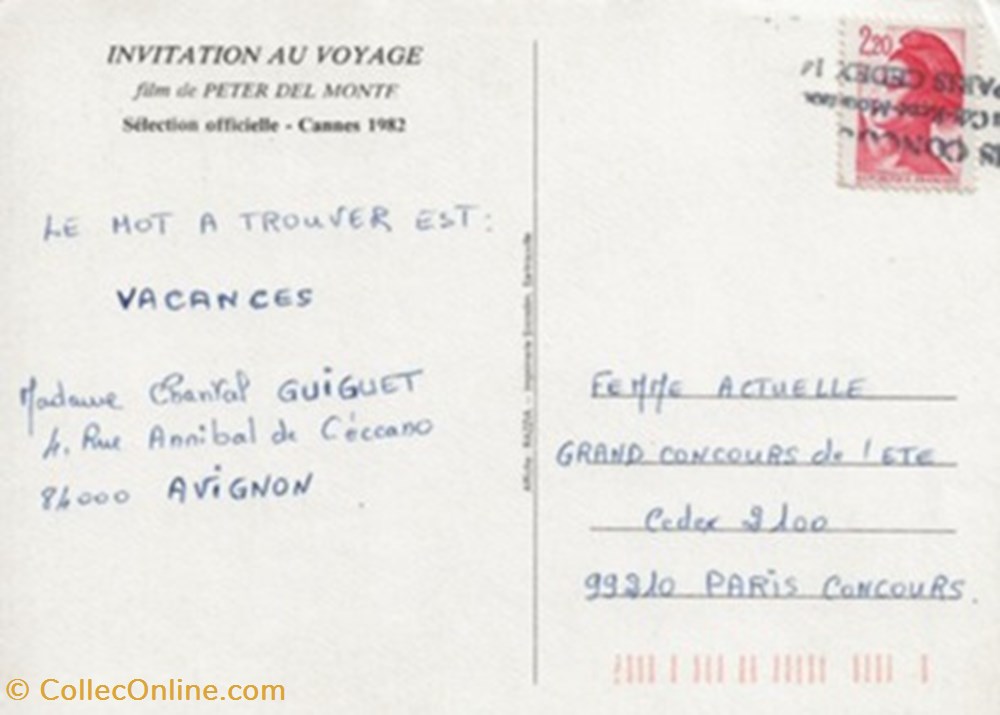 INVITATION AU VOYAGE
film de PETER DEL MONTE
Sélection officielle - Cannes 1982
LE MOT A TROUVER EST :
VACANCES
Madame Chantal GUIGUET
4, Rue Annibal de Céccano
84000 AVIGNON
2,20
PARIS CEDEX
FEMME ACTUELLE
GRAND CONCOURS de l'ETE
Cedex 2100
99210 PARIS CONCOURS.
© CollecOnline.com